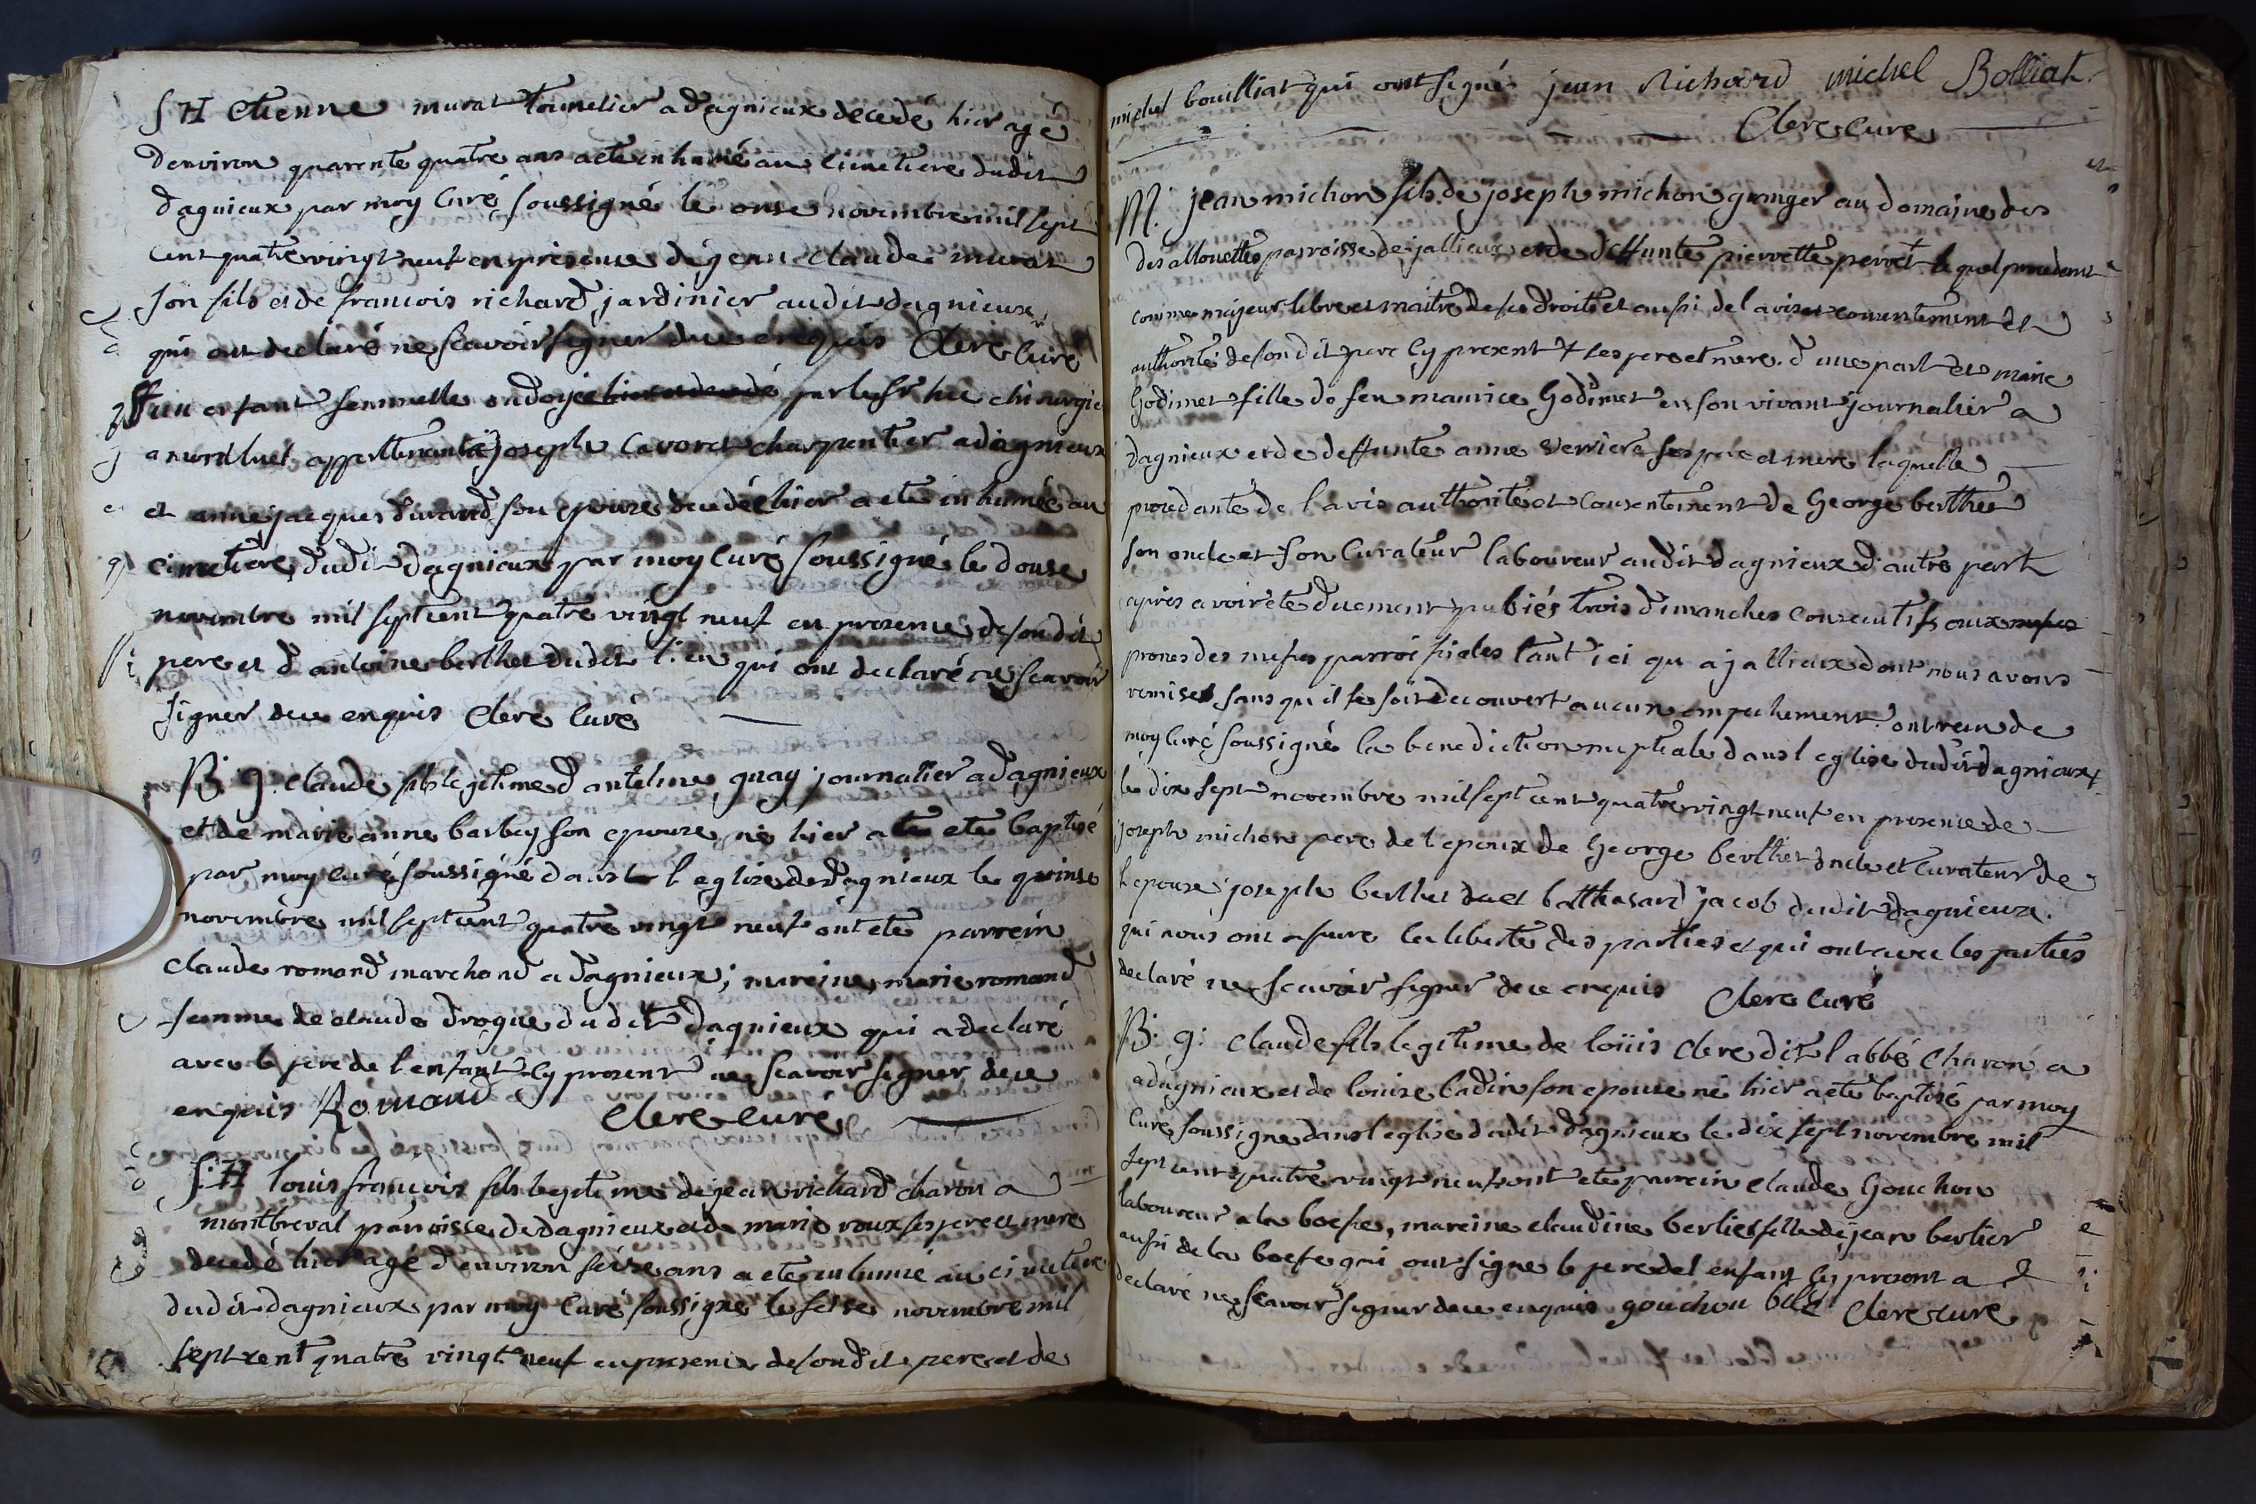 S H etienne murat tonnelier a dagnieux decedé hier agé
denviron quarente quatre ans a eté inhumé au cimetiere dudit
dagnieux par moy curé soussigné le onse novembre mil sept
cent quatre vingt neuf en presence de jean claude murat
son fils et de francois richard jardinier audit dagnieux
qui ont declaré ne scavoir signer due enquis Clerc curé
un enfant femmelle ondoyé par le sr chirurgien
a montluel appartenant a joseph Cavoret charpentier a dagnieux
et anne jacques durand son epouze decedé hier a eté inhumée au
cimetiere dudit dagnieux par moy curé soussigné le douse
novembre mil sept cent quatre vingt neuf en presence de son dit
pere et d antoine berthet dudit lieu qui ont declaré ne scavoir
signer deue enquis Clerc curé
B. g. claude fils legitime d antelme quay journalier a dagnieux
et de marie anne barbey son epouze né hier a eté baptisé
par moy curé soussigné dans l eglize de dagnieux le quinse
novembre mil sept cent quatre vingt neuf ont eté parrein
claude romand marchand a dagnieux; mareine marie romand
femme de claude drogue dudit dagnieux qui a declaré
avec le pere de l enfant cy present ne scavoir signer deue
enquis Romand Clerc curé
S. H louis françois fils legitime de jean richard charon a
montbreval parroisse de dagnieux et de marie roux ses pere et mere
decedé hier agé d environ seize ans a eté inhumé au cimetiere
dudit dagnieux par moy curé soussigné le seise novembre mil
sept cent quatre vingt neuf en presence de son dit pere et de
michel bouilliat qui ont signé jean Richard michel Bolliat
Clerc curé
M. jean michon fils de joseph michon granger au domaine des
des allouettes parroisse de jallieux et de deffunte pierrette perret le quel procedant
comme majeur libre et maitre de ses droits et aussi de l avis et consentement et
authorité de son dit pere cy present ses pere et mere. d une part et marie
Godimet fille de feu maurice Godimet en son vivant journalier a
dagnieux et de deffunte anne verriere ses pere et mere laquelle
procedante de l avis authorité et consentement de George berthet
son oncle et son curateur laboureur audit dagnieux d autre part
apres avoir eté duement publiés trois dimanches consecutifs aux
prones des messes parroissiales tant ici qu a jallieux dont nous avons
remises sans qu il se soit decouvert aucun empechement ont recu de
moy curé soussigné la benediction nuptiale dans l eglise dudit dagnieux
le dix sept novembre mil sept cent quatre vingt neuf en presence de
joseph michon pere de l epoux de George berthet oncle et curateur de
l epouse joseph berthet et batthasard jacob dudit dagnieux.
qui nous ont assure la liberte des parties et qui ont avec les parties
declaré ne scavoir signer deue enquis Clerc curé
B. g. Claude fils legitime de loüis clerc dit l abbé Charon a
a dagnieux et de louise badin son epouse né hier a eté baptisé par moy
Curé soussigné dans l eglise dudit dagnieux le dix sept novembre mil
sept cent quatre vingt neuf ont eté parrein claude Gouchon
laboureur a la boesse, mareine claudine berlier fille de jean berlier
aussi de la boesse qui ont signe le pere de l enfant cy present a
declaré ne scavoir signer deue enquis gouchon Clerc curé